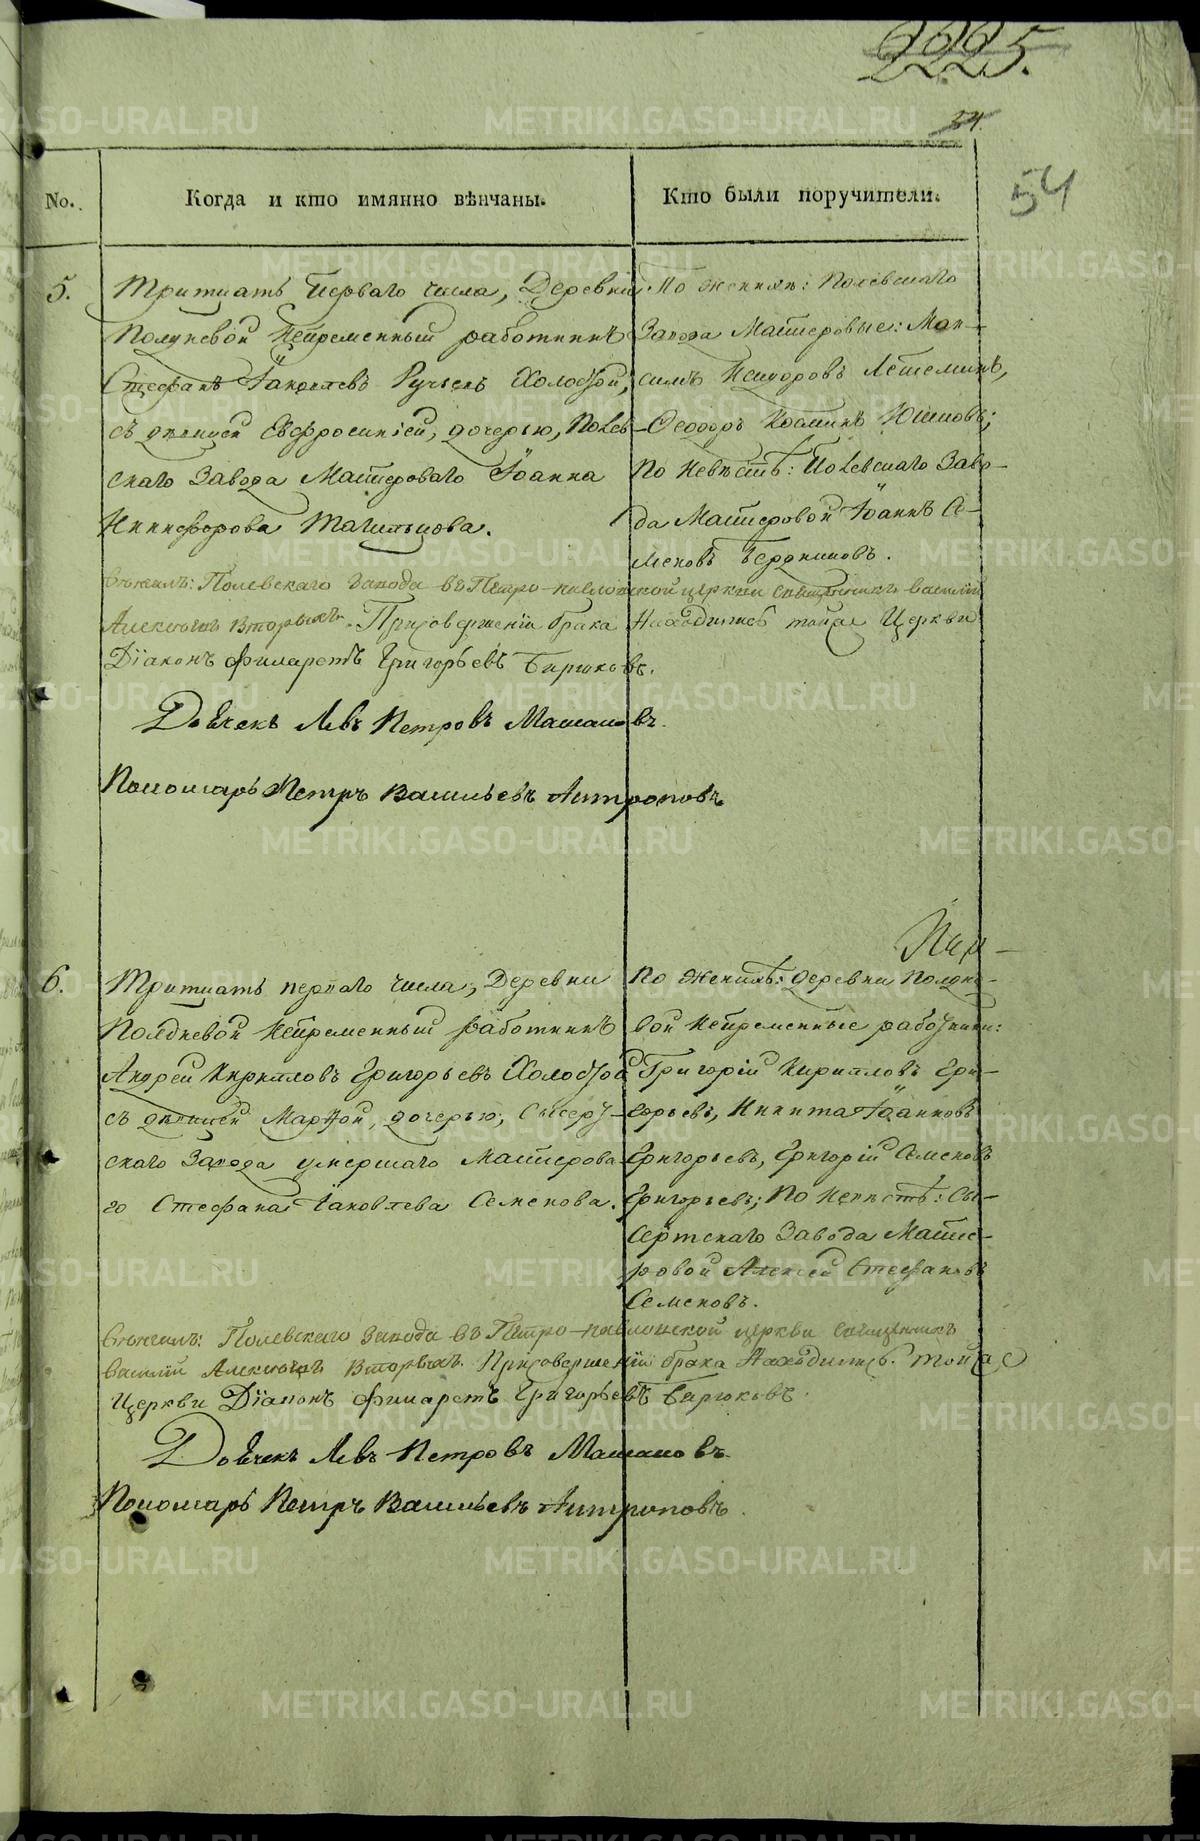 2225.
34.
54
No.
Когда и кто имянно вѣнчаны.
Кто были поручители.
5.
Тритцать перваго числа, Деревни
Полдневой Непременный работникъ
Стефанъ Iаковлевъ Холостой,
съ девицей Евфросиніей, дочерью, Полев-
скаго Завода Мастероваго Iоанна
Никифорова Тагильцова.
По женихѣ: Полевскаго
Завода Мастеровые: Мак-
симъ
Ѳеодоръ
по Невѣстѣ: Полевскаго Заво-
да Мастеровой Iоаннъ Се-
меновъ Бердниковъ.
Венчалъ: Полевскаго Завода въ Петро-павловской церкви священникъ василій
Алексѣевъ Вторыхъ. При совершеніи брака Находились тойже Церкви
Дiаконъ Филаретъ Григорьевъ Бирюковъ.
Дьячекъ Левъ Петровъ
Пономарь Петръ Васильевъ Антроповъ
6.
Тритцать перваго числа, Деревни
Полдневой Непременный работникъ
Андрей Кирилловъ Григорьевъ Холостой
съ девицей Марѳой, дочерью, Сысерт-
скаго Завода умершаго Мастерова-
го Стефана Iаковлева Семенова.
По Женихѣ: деревни Полдне-
вой Непременные работники:
Григорій Кирилловъ Гри-
горьевъ, Никита Iоанновъ
Григорьевъ, Григорій Семеновъ
Григорьевъ; По Невѣстѣ: Сы-
сертскаго Завода Масте-
ровой Алексѣй Стефановъ
Семеновъ.
Венчалъ: Полевскаго Завода въ Петро-павловской церкви священникъ
василій Алексѣевъ Вторыхъ. При совершеніи брака Находились: тойже
Церкви Дiаконъ Филаретъ Григорьевъ Бирюковъ.
Дьячекъ Левъ Петровъ
Пономарь Петръ Васильевъ Антроповъ.
METRIKI.GASO-URAL.RU